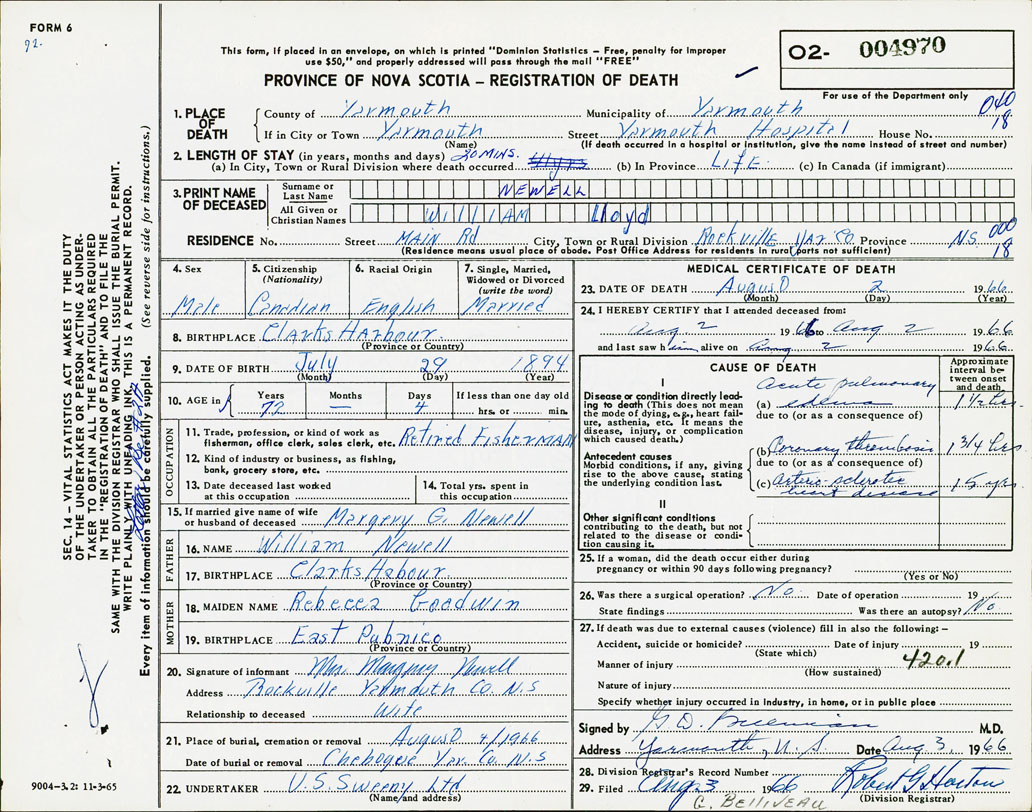 FORM 6
92.
This form, if placed in an envelope, on which is printed "Dominion Statistics – Free, penalty for improper
use $50," and properly addressed will pass through the mail "FREE"
PROVINCE OF NOVA SCOTIA – REGISTRATION OF DEATH
O2- 004970
For use of the Department only
040
18
1. PLACE OF DEATH
County of Yarmouth Municipality of Yarmouth
If in City or Town Yarmouth Street Yarmouth Hospital House No.
(Name) (If death occurred in a hospital or institution, give the name instead of street and number)
2. LENGTH OF STAY (in years, months and days) 20 MINS.
(a) In City, Town or Rural Division where death occurred (b) In Province LIFE (c) In Canada (if immigrant)
3. PRINT NAME OF DECEASED
Surname or Last Name NEWELL
All Given or Christian Names WILLIAM Lloyd
RESIDENCE No. Street MAIN Rd City, Town or Rural Division Rockville Yar. Co. Province N.S.
000
18
(Residence means usual place of abode. Post Office Address for residents in rural parts not sufficient)
4. Sex
Male
5. Citizenship
(Nationality)
Canadian
6. Racial Origin
English
7. Single, Married,
Widowed or Divorced
(write the word)
Married
8. BIRTHPLACE Clarks Harbour
(Province or Country)
9. DATE OF BIRTH July 29 1894
(Month) (Day) (Year)
10. AGE in Years Months Days If less than one day old
72 — 4 hrs. or min.
OCCUPATION
11. Trade, profession, or kind of work as
fisherman, office clerk, sales clerk, etc. Retired FisherMAN
12. Kind of industry or business, as fishing,
bank, grocery store, etc.
13. Date deceased last worked
at this occupation
14. Total yrs. spent in
this occupation
15. If married give name of wife
or husband of deceased Margery G. Newell
FATHER
16. NAME William Newell
17. BIRTHPLACE Clarks Habour
(Province or Country)
MOTHER
18. MAIDEN NAME Rebecca Goodwin
19. BIRTHPLACE East Pubnico
(Province or Country)
20. Signature of informant Mrs. Margery Newell
Address Rockville Yarmouth Co. N.S
Relationship to deceased Wife
21. Place of burial, cremation or removal AugusD 4/1966
Date of burial or removal Chebogue Yar. Co. N.S
22. UNDERTAKER V.S. Sweeny Ltd
(Name and address)
MEDICAL CERTIFICATE OF DEATH
23. DATE OF DEATH AugusD 2 1966
(Month) (Day) (Year)
24. I HEREBY CERTIFY that I attended deceased from:
Aug 2 1966 to Aug 2 1966
and last saw him alive on Aug 2 1966
CAUSE OF DEATH
Approximate interval between onset and death
I
Disease or condition directly leading to death (This does not mean the mode of dying, e.g., heart failure, asthenia, etc. It means the disease, injury, or complication which caused death.)
Acute pulmonary
(a) edema 1 1/2 hrs.
due to (or as a consequence of)
Antecedent causes
Morbid conditions, if any, giving rise to the above cause, stating the underlying condition last.
(b) Coronary thrombosis 1 3/4 hrs
due to (or as a consequence of)
(c) Arterio-sclerotic 15 yrs.
heart disease
II
Other significant conditions
contributing to the death, but not related to the disease or condition causing it.
25. If a woman, did the death occur either during
pregnancy or within 90 days following pregnancy?
(Yes or No)
26. Was there a surgical operation? No Date of operation 19
State findings Was there an autopsy? No
27. If death was due to external causes (violence) fill in also the following: –
Accident, suicide or homicide? Date of injury 19
(State which)
Manner of injury 420.1
(How sustained)
Nature of injury
Specify whether injury occurred in industry, in home, or in public place
Signed by G. D. M.D.
Address Yarmouth, N.S Date Aug 3, 1966
28. Division Registrar's Record Number
29. Filed Aug 3 1966 Robert G Horton
(Division Registrar)
C. BELLIVEAU
SEC. 14 – VITAL STATISTICS ACT MAKES IT THE DUTY
OF THE UNDERTAKER OR PERSON ACTING AS UNDER-
TAKER TO OBTAIN ALL THE PARTICULARS REQUIRED
IN THE "REGISTRATION OF DEATH" AND TO FILE THE
SAME WITH THE DIVISION REGISTRAR WHO SHALL ISSUE THE BURIAL PERMIT.
WRITE PLAINLY WITH UNFADING INK. THIS IS A PERMANENT RECORD.
Every item of information should be carefully supplied. (See reverse side for instructions.)
9004–3.2: 11-3-65